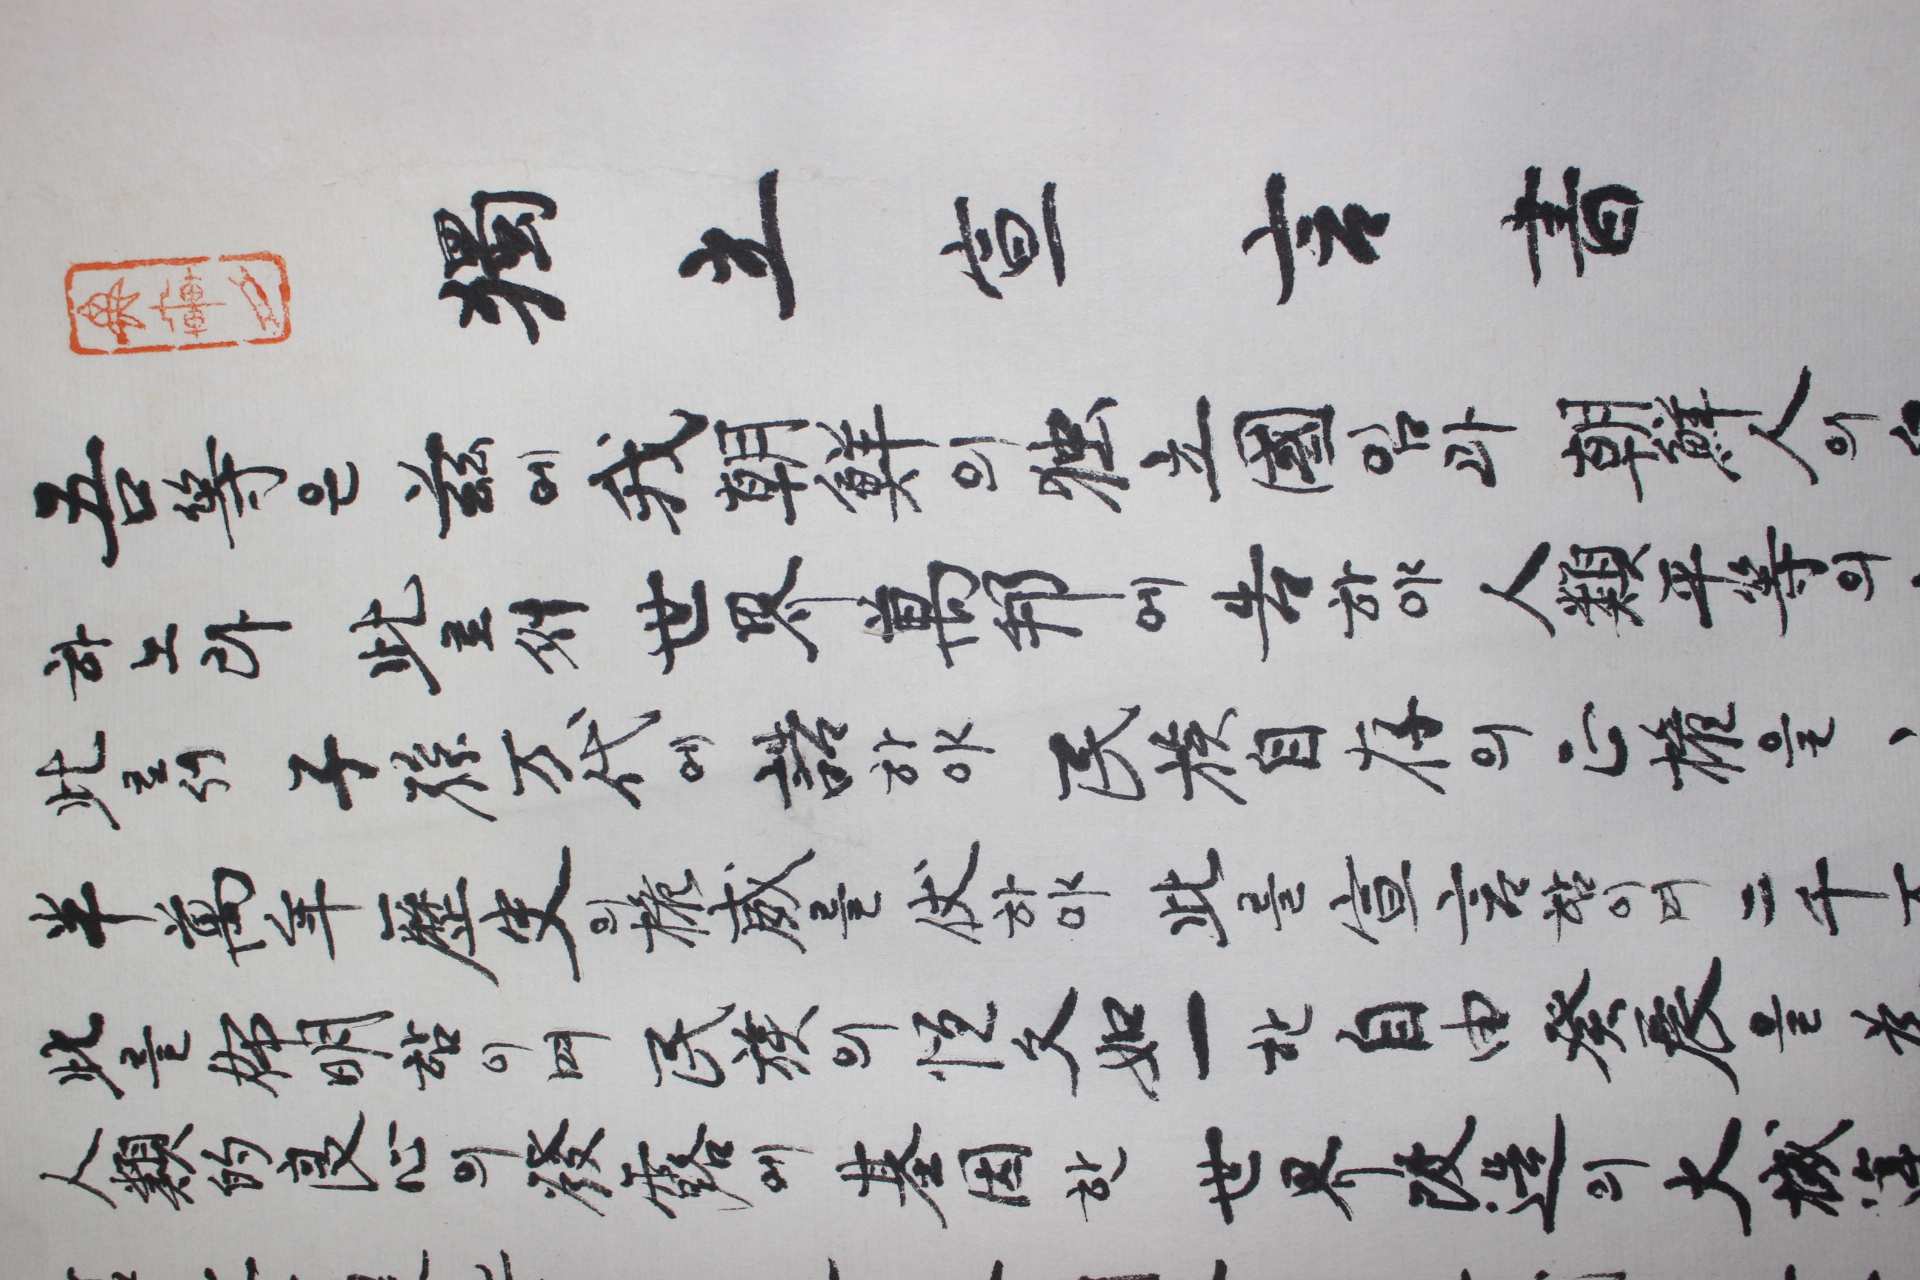 獨立宣言書
吾等은 玆에 我朝鮮의 独立國임과 朝鮮人의
하노라 此로써 世界萬邦에 告하야 人類平等의
此로써 子孫万代에 誥하야 民族自存의 正權을
半萬年歷史의 權威를 仗하야 此를 宣言함이며 二千
此를 佈明함이며 民族의 恒久如一한 自由發展을
人類的良心의 發露에 基因한 世界改造의 大機運